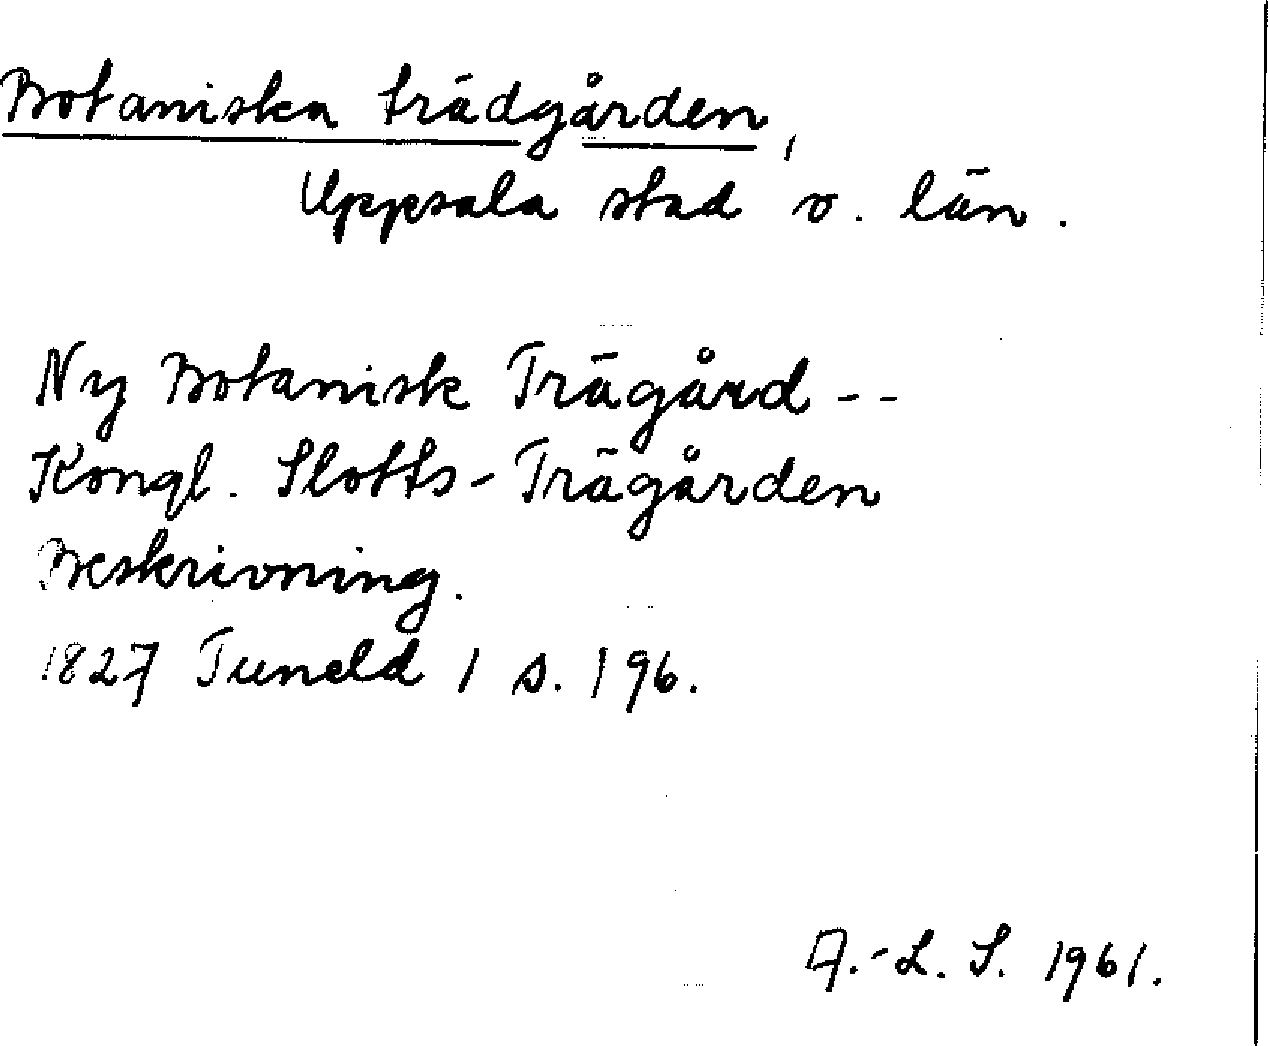 Botaniska trädgården,
Uppsala stad o. län.
Ny Botanisk Trägård --
Kongl. Slotts-Trägården
Beskrivning.
1827 Tuneld 1 s. 196.
A.-L. S. 1961.